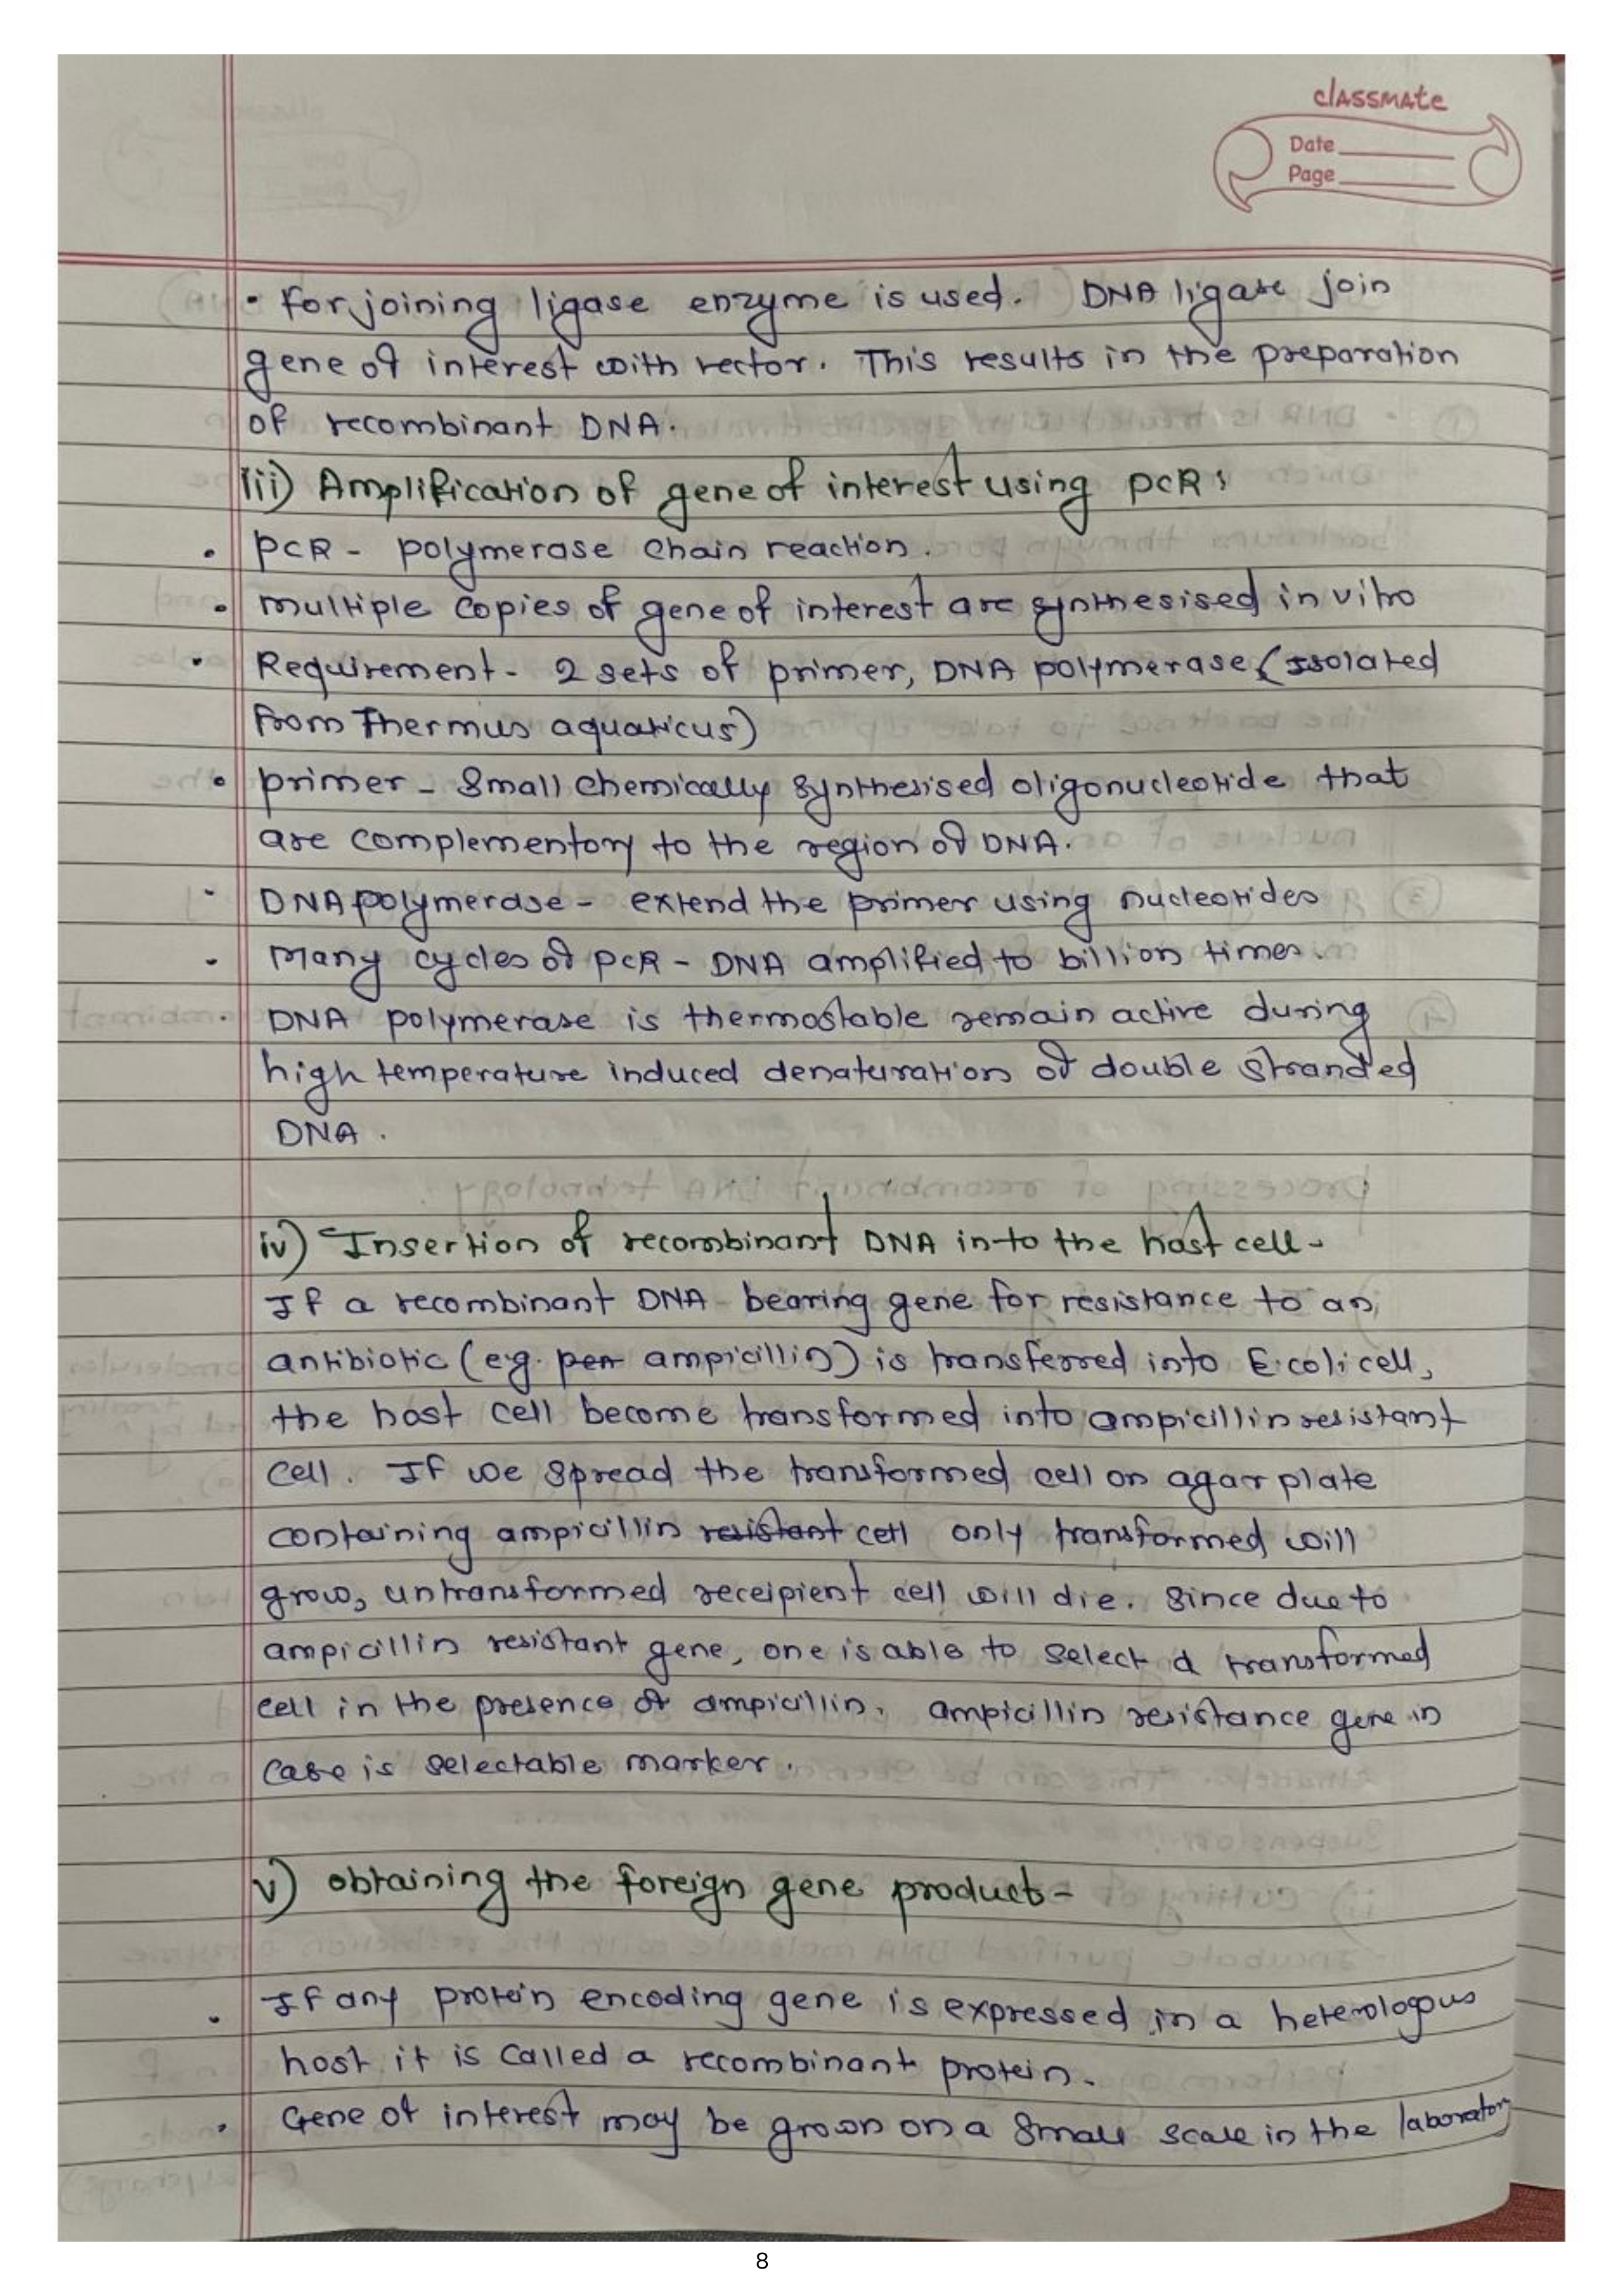 classmate
Date
Page
• For joining ligase enzyme is used. DNA ligase join
gene of interest with vector. This results in the preparation
of recombinant DNA.
iii) Amplification of gene of interest using PCR:
• PCR - polymerase chain reaction.
• multiple copies of gene of interest are synthesised in vitro
• Requirement - 2 sets of primer, DNA polymerase (Isolated
from Thermus aquaticus)
• primer - Small chemically synthesised oligonucleotide that
are complementory to the region of DNA.
• DNA polymerase - extend the primer using nucleotides
• Many cycles of PCR - DNA amplified to billion times.
• DNA polymerase is thermostable remain active during
high temperature induced denaturation of double stranded
DNA.
iv) Insertion of recombinant DNA in to the host cell -
If a recombinant DNA bearing gene for resistance to an
antibiotic (e.g. pen ampicillin) is transferred into E.coli cell,
the host cell become transformed into ampicillin resistant
cell. If we spread the transformed cell on agar plate
containing ampicillin resistant cell only transformed will
grow, untransformed receipient cell will die. Since due to
ampicillin resistant gene, one is able to select a transformed
cell in the presence of ampicillin. ampicillin resistance gene in
case is selectable marker.
v) obtaining the foreign gene product -
• If any protein encoding gene is expressed in a heterologous
host it is called a recombinant protein.
• Gene of interest may be grown on a small scale in the laboratory
8